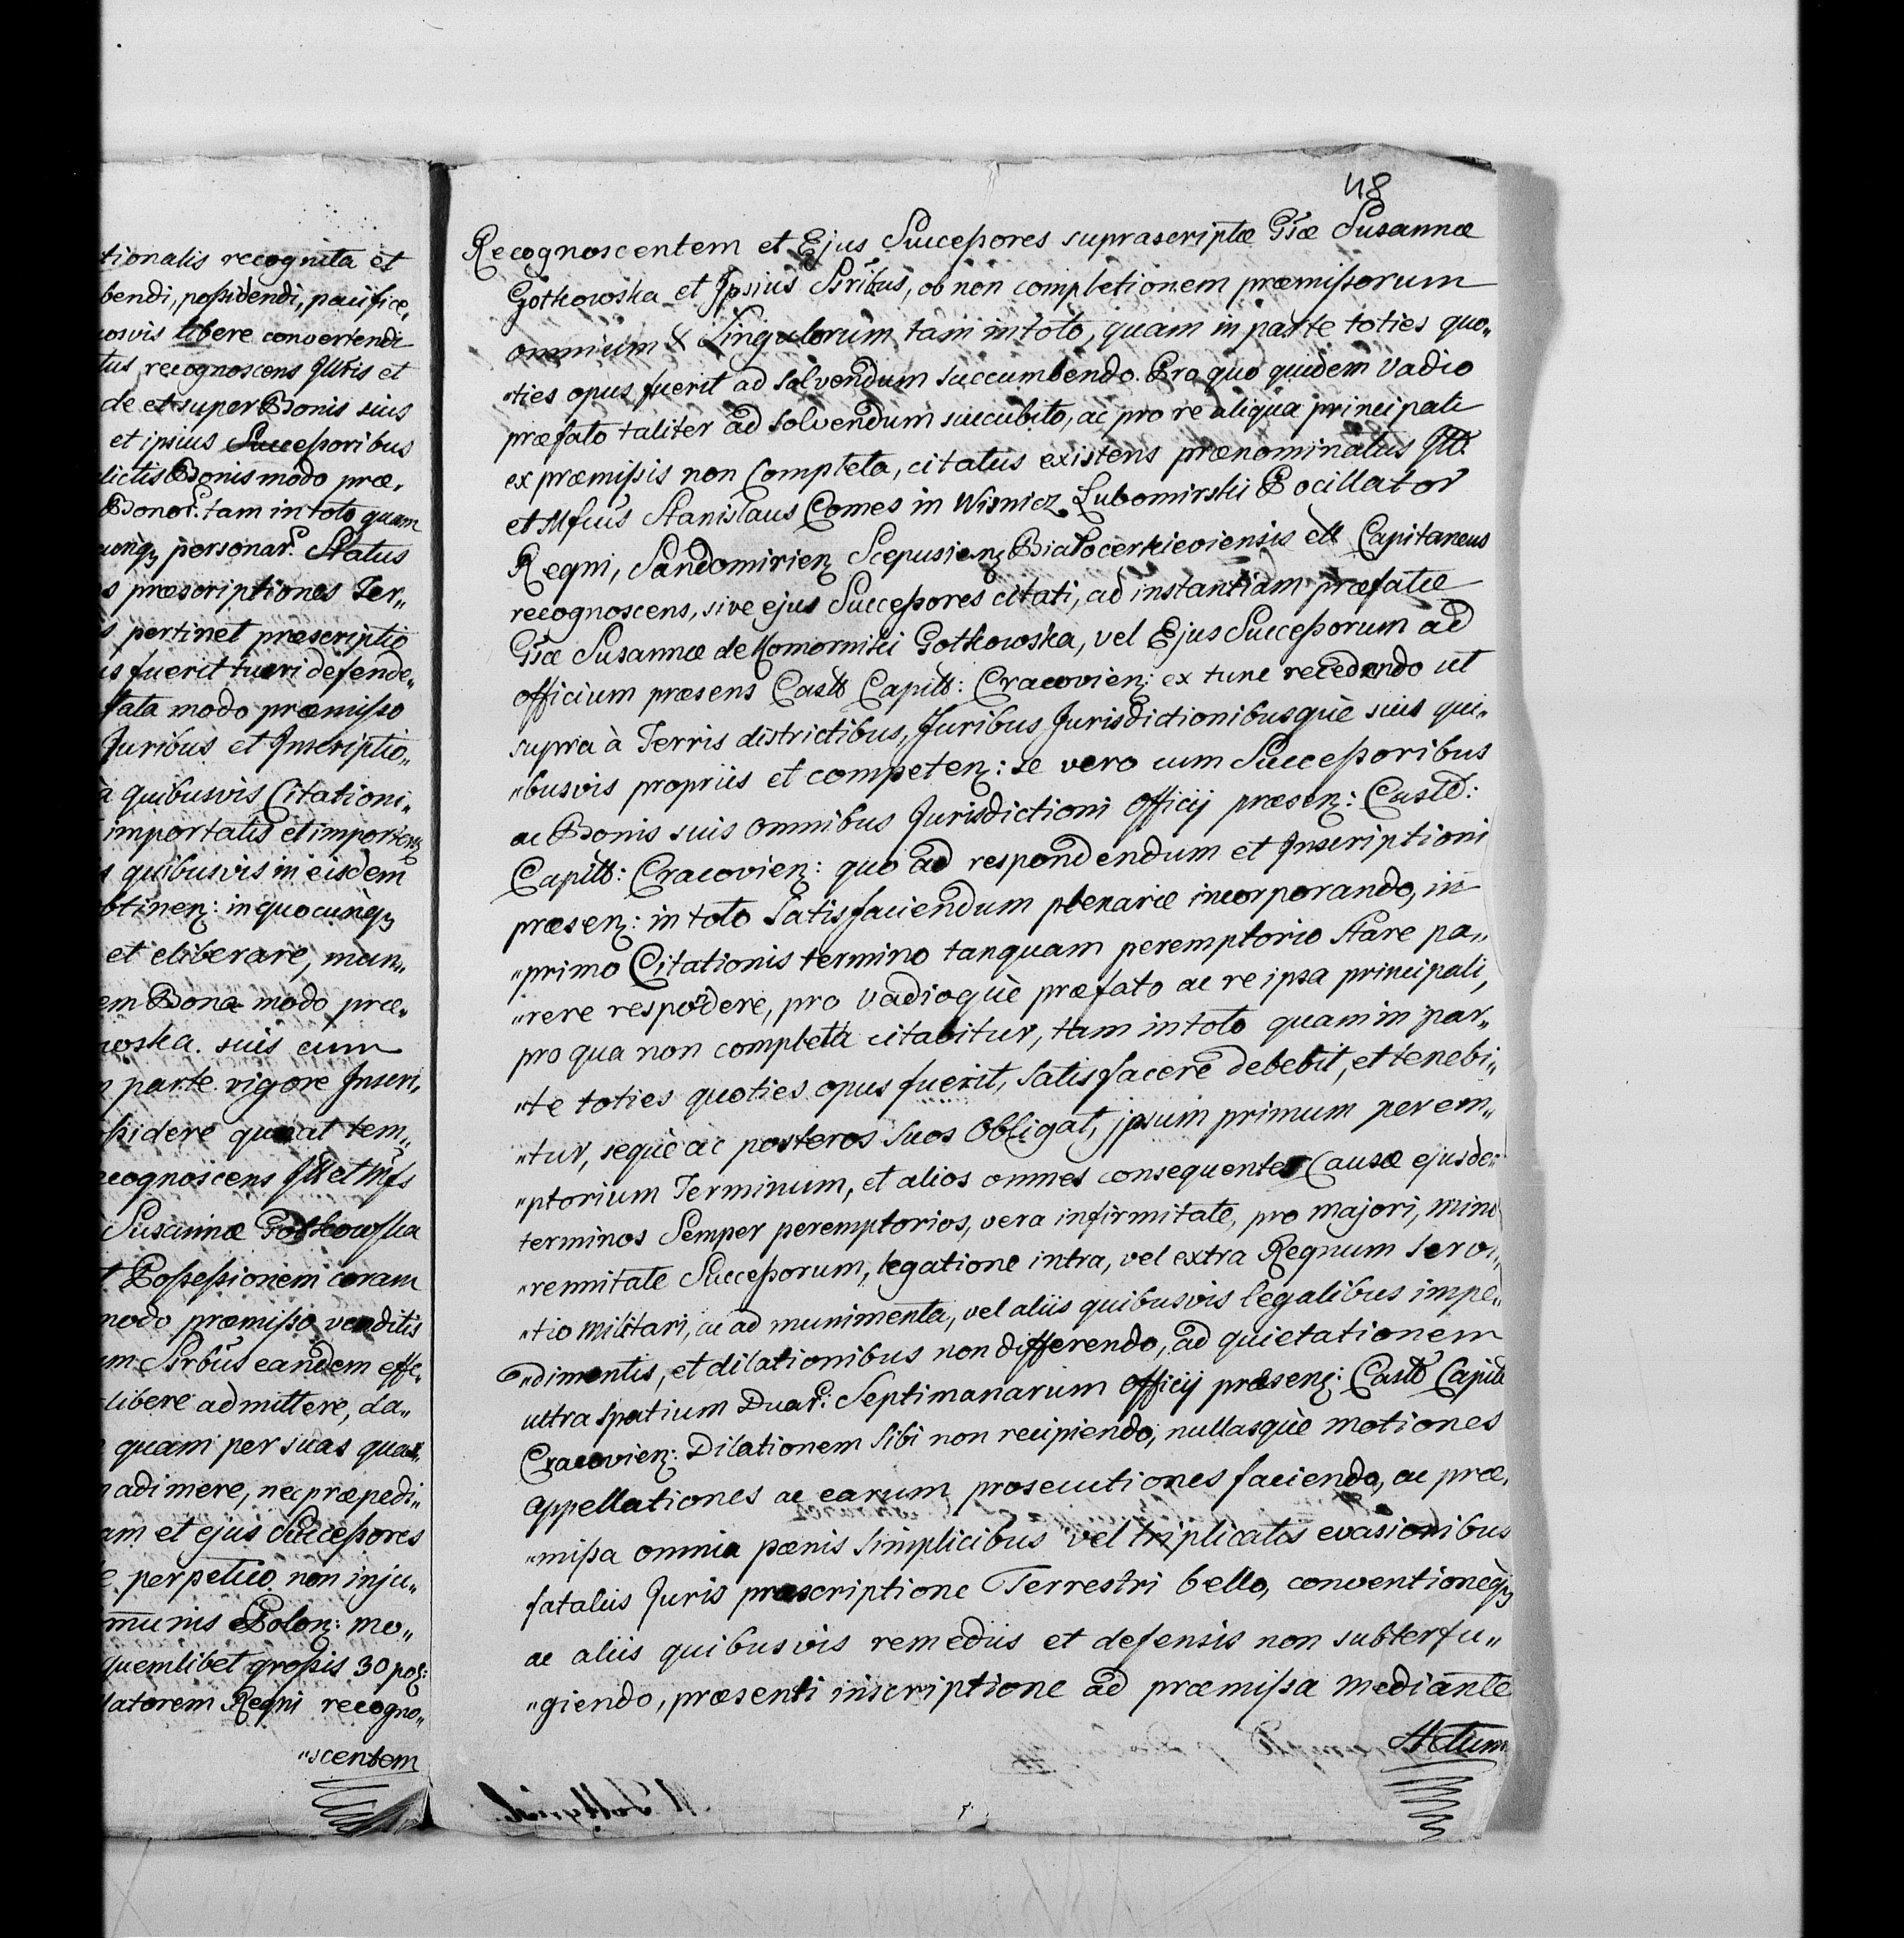 tionalis recognita et
bendi, possidendi, pacifice,
uosvis libere convertendi
tus recognoscens Illris et
de et super Bonis suis
et ipsius Successoribus
dictis Bonis modo præ„
Bonor: tam in toto quam
cunq3 personar: Status
s præscriptiones Ter„
s pertinet præscriptio
is fuerit tueri defende„
fata modo præmisso
Juribus et Inscriptio„
à quibusvis Citationi„
importatis et importenz
s quibusvis in eisdem
btinenz: in quocunq3
et eliberare, man„
em Bona modo præ„
woska. suis cum
n parte rigore Inscri„
ssidere queat tem„
ecognoscens Ill et Mfs
Susannæ Gotkowska
t Possessionem coram
modo præmisso venditis
um Srbus eandem effe„
libere admittere, da„
quam per suas quas„
adimere, nec præpedi„
am et ejus Successores
e perpetuo non inju„
munis Polonz: mo„
quemlibet grossis 30 pol:
latorem Regni recogno„
„scentem
48
Recognoscentem et Ejus Successores suprascriptæ Gsæ Susannæ
Gotkowska et Ipsius Ssribus, ob non completionem præmissorum
omnium & Singulorum, tam in toto, quam in parte toties quo„
„ties opus fuerit ad solvendum succumbendo. Pro quo quidem Vadio
præfato taliter ad solvendum succubito, ac pro re aliqua principali
ex præmissis non Completa, citatus existens prænominatus Illr
et Mfcus Stanislaus Comes in Wisnicz Lubomirski Pocillator
Regni, Sandomirienz Scepusienz Białocerkieviensis ett Capitaneus
recognoscens, sive ejus Successores citati, ad instantiam præfatæ
Gsæ Susannæ de Komornitki Gotkowska, vel Ejus Successorum ad
officium præsens Castr Capitt: Cracovienz: ex tunc recedendo ut
supra à Terris districtibus, Juribus Jurisdictionibusquè suis qui„
„busvis propriis et competenz: se vero cum Successoribus
ac Bonis suis omnibus Jurisdictioni Officij præsenz: Castr:
Capitt: Cracovienz: quo ad respondendum et Inscriptioni
præsenz: in toto Satisfaciendum plenarie incorporando, in
„primo Citationis termino tanquam peremptorio Stare pa„
„rere respōdere, pro Vadioquè præfato ac re ipsa principali,
pro qua non completa citabitur, tam in toto quam in par„
„te toties quoties opus fuerit, Satisfacere debebit, et tenebi„
„tur, sequè ac posteros suos Obligat, jpsum primum perem„
„ptorium Terminum, et alios omnes consequentes Causæ ejusde„
terminos Semper peremptorios, vera infirmitate, pro majori, mino
„rennitate Successorum, legatione intra, vel extra Regnum servi„
„tio militari, ac ad munimenta, vel aliis quibusvis legalibus impe„
„dimentis, et dilationibus non differendo, ad quietationem
ultra spatium Duar: Septimanarum Officij præsenz: Castr Capitt
Cracovienz: Dilationem Sibi non recipiendo, nullasquè motiones
appellationes ac earum prosecutiones faciendo, ac præ„
„missa omnia pænis simplicibus vel triplicatis evasionibus
fataliis Juris præscriptione Terrestri bello, conventioneq3
ac aliis quibusvis remediis et defensis non subterfu„
„giendo, præsenti inscriptione ad præmissa mediante
Actum